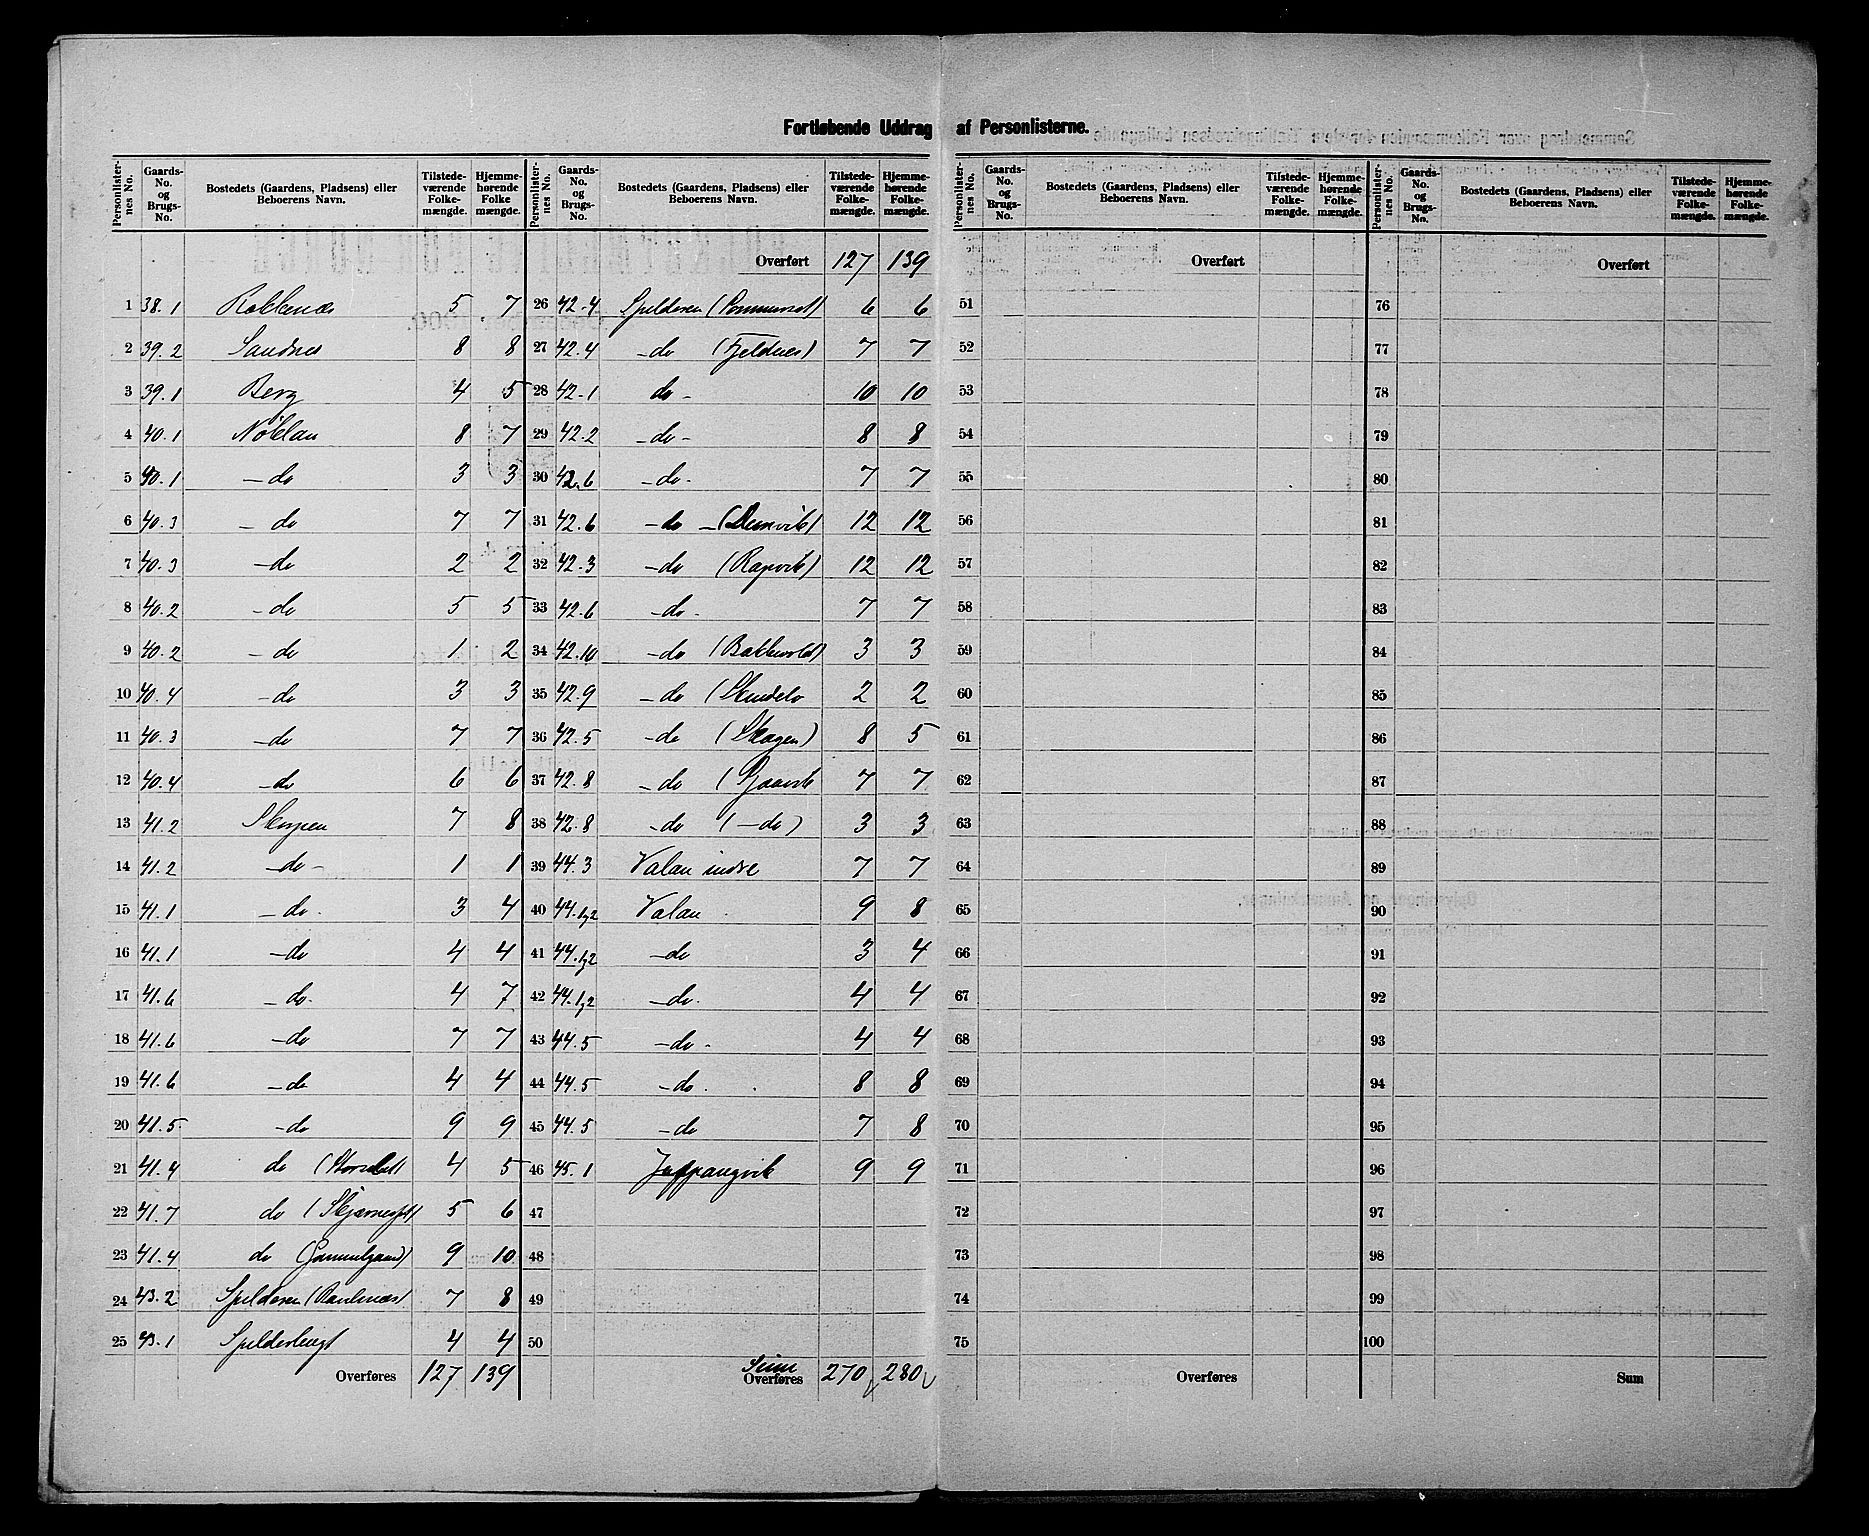 Fortløbende Uddrag af Personlisterne.
Personlister-nes No. | Gaards-No. og Brugs-No. | Bostedets (Gaardens, Pladsens) eller Beboerens Navn. | Tilstede-værende Folke-mængde. | Hjemme-hørende Folke mængde.
1 38.1 Roklenæs 5 7
2 39.2 Sandnes 8 8
3 39.1 Berg 4 5
4 40.1 Nöklan 8 7
5 40.1 - do 3 3
6 40.3 - do 7 7
7 40.3 - do 2 2
8 40.2 - do 5 5
9 40.2 - do 1 2
10 40.4 - do 3 3
11 40.3 - do 7 7
12 40.4 - do 6 6
13 41.2 Skorpen 7 8
14 41.2 - do - 1 1
15 41.1 - do. 3 4
16 41.1 - do 4 4
17 41.6 - do. 4 7
18 41.6 - do 7 7
19 41.6 - do 4 4
20 41.5 - do 9 9
21 41.4 do (Storslett 4 5
22 41.7 do 5 6
23 41.4 do (Gammelgaard) 9 10
24 43.2 Spilderen (Raulenæs) 7 8
25 43.1 4 4
Overføres 127 139
Personlister-nes No. | Gaards-No. og Brugs-No. | Bostedets (Gaardens, Pladsens) eller Beboerens Navn. | Tilstede-værende Folke-mængde. | Hjemme-hørende Folke-mængde.
Overført 127 139
26 42.4 Spilderen 6 6
27 42.4 - do (Fjeldnes) 7 7
28 42.1 do - 10 10
29 42.2 - do - 8 8
30 42.6 - do - 7 7
31 42.6 - do - 12 12
32 42.3 - do (Rapvik) 12 12
33 42.6 - do - 7 7
34 42.10 - do (Bakkevold) 3 3
35 42.9 - do 2 2
36 42.5 - do (Skogen) 8 5
37 42.8 - do 7 7
38 42.8 - do (- do) 3 3
39 44.3 Valan indre 7 7
40 44.1,2 Valan 9 8
41 44.1,2 - do 3 4
42 44.1,2 - do. 4 4
43 44.5 - do - 4 4
44 44.5 - do. 8 8
45 44.5 - do 7 8
46 45.1 9 9
47
48
49
50
Sum
Overføres 270 280
Personlister-nes No. | Gaards-No. og Brugs-No. | Bostedets (Gaardens, Pladsens) eller Beboerens Navn. | Tilstede-værende Folke-mængde. | Hjemme-hørende Folke-mængde.
Overført
51
52
53
54
55
56
57
58
59
60
61
62
63
64
65
66
67
68
69
70
71
72
73
74
75
Overføres
Personlister-nes No. | Gaards-No. og Brugs-No. | Bostedets (Gaardens, Pladsens) eller Beboerens Navn. | Tilstede-værende Folke-mængde. | Hjemme-hørende Folke-mængde.
Overført
76
77
78
79
80
81
82
83
84
85
86
87
88
89
90
91
92
93
94
95
96
97
98
99
100
Sum